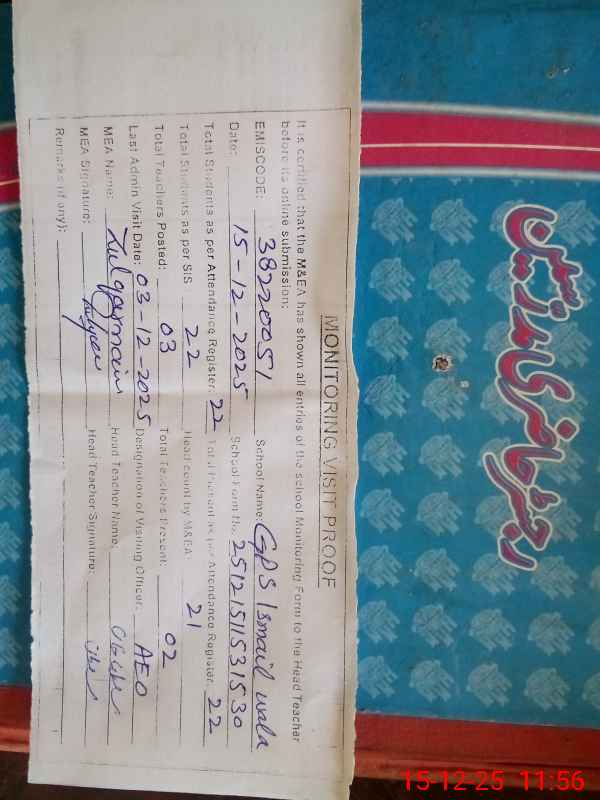 MONITORING VISIT PROOF
It is certified that the M&EA has shown all entries of the school Monitoring Form to the Head Teacher
before its online submission:
EMISCODE: 38220051 School Name: GPS Ismail wala
Date: 15-12-2025 School Form No. 25121511531530
Total Students as per Attendance Register: 22 Total Present as per Attendance Register: 22
Total Students as per SIS 22 Head count by M&EA: 21
Total Teachers Posted: 03 Total Teachers Present: 02
Last Admin Visit Date: 03-12-2025 Designation of Visiting Officer: AEO
MEA Name: Zulqarnain Head Teacher Name:
MEA Signature: Head Teacher Signature:
Remarks (if any):
رجسٹر حاضری مدرسین
15-12-25 11:56